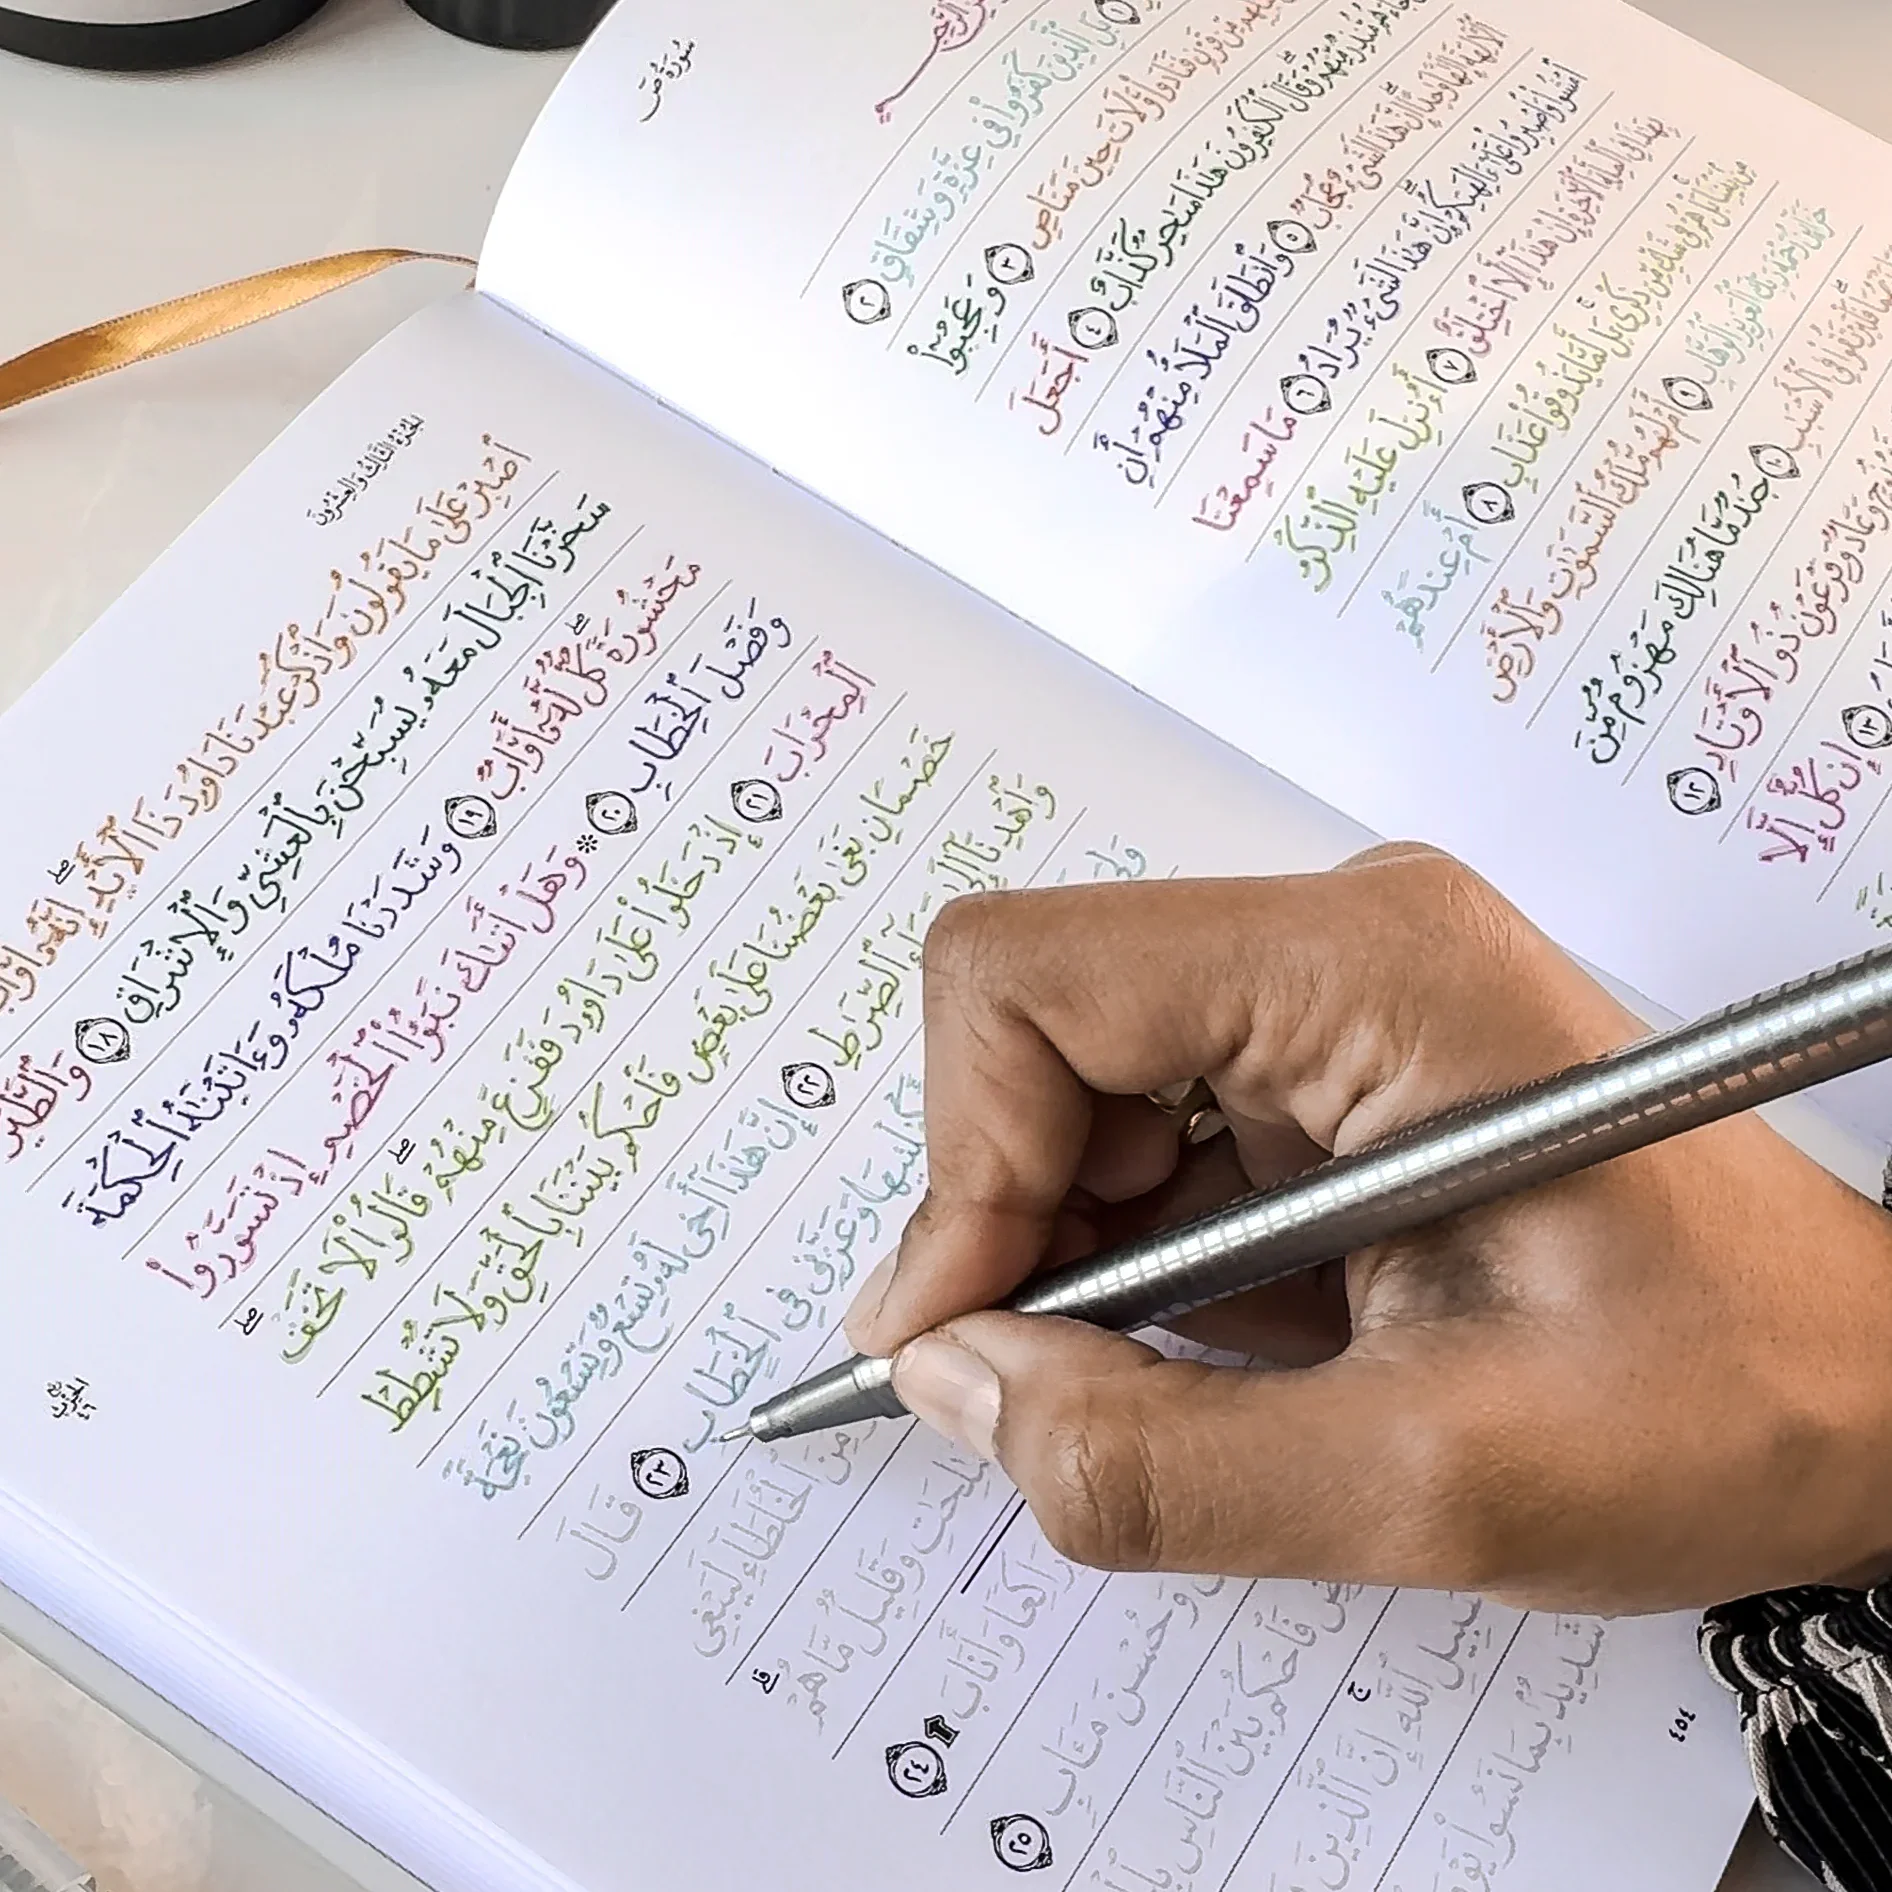 سُورَةُ صٓ
بَلِ ٱلَّذِينَ كَفَرُوا۟ فِى عِزَّةٍ وَشِقَاقٍ ٢
قَرْنٍ فَنَادَوا۟ وَّلَاتَ حِينَ مَنَاصٍ ٣ وَعَجِبُوٓا۟
مُّنذِرٌ مِّنْهُمْ وَقَالَ ٱلْكَٰفِرُونَ هَٰذَا سَٰحِرٌ كَذَّابٌ ٤ أَجَعَلَ
ٱلْءَالِهَةَ إِلَٰهًا وَٰحِدًا إِنَّ هَٰذَا لَشَىْءٌ عُجَابٌ ٥ وَٱنطَلَقَ ٱلْمَلَأُ مِنْهُمْ أَنِ
ٱمْشُوا۟ وَٱصْبِرُوا۟ عَلَىٰٓ ءَالِهَتِكُمْ إِنَّ هَٰذَا لَشَىْءٌ يُرَادُ ٦ مَا سَمِعْنَا
بِهَٰذَا فِى ٱلْمِلَّةِ ٱلْءَاخِرَةِ إِنْ هَٰذَآ إِلَّا ٱخْتِلَٰقٌ ٧ أَءُنزِلَ عَلَيْهِ ٱلذِّكْرُ
مِنۢ بَيْنِنَا بَلْ هُمْ فِى شَكٍّ مِّن ذِكْرِى بَل لَّمَّا يَذُوقُوا۟ عَذَابِ ٨ أَمْ عِندَهُمْ
خَزَآئِنُ رَحْمَةِ رَبِّكَ ٱلْعَزِيزِ ٱلْوَهَّابِ ٩ أَمْ لَهُم مُّلْكُ ٱلسَّمَٰوَٰتِ وَٱلْأَرْضِ
فَلْيَرْتَقُوا۟ فِى ٱلْأَسْبَٰبِ ١٠ جُندٌ مَّا هُنَالِكَ مَهْزُومٌ مِّنَ
نُوحٍ وَعَادٌ وَفِرْعَوْنُ ذُو ٱلْأَوْتَادِ ١٢
١٣ إِن كُلٌّ إِلَّا
ٱلْجُزْءُ ٱلثَّالِثُ وَٱلْعِشْرُونَ
ٱصْبِرْ عَلَىٰ مَا يَقُولُونَ وَٱذْكُرْ عَبْدَنَا دَاوُۥدَ ذَا ٱلْأَيْدِ ۖ إِنَّهُۥٓ أَوَّابٌ
سَخَّرْنَا ٱلْجِبَالَ مَعَهُۥ يُسَبِّحْنَ بِٱلْعَشِىِّ وَٱلْإِشْرَاقِ ١٨ وَٱلطَّيْرَ
مَحْشُورَةً ۖ كُلٌّ لَّهُۥٓ أَوَّابٌ ١٩ وَشَدَدْنَا مُلْكَهُۥ وَءَاتَيْنَٰهُ ٱلْحِكْمَةَ
وَفَصْلَ ٱلْخِطَابِ ٢٠ ۞ وَهَلْ أَتَىٰكَ نَبَؤُا۟ ٱلْخَصْمِ إِذْ تَسَوَّرُوا۟
ٱلْمِحْرَابَ ٢١ إِذْ دَخَلُوا۟ عَلَىٰ دَاوُۥدَ فَفَزِعَ مِنْهُمْ ۖ قَالُوا۟ لَا تَخَفْ ۖ
خَصْمَانِ بَغَىٰ بَعْضُنَا عَلَىٰ بَعْضٍ فَٱحْكُم بَيْنَنَا بِٱلْحَقِّ وَلَا تُشْطِطْ
وَٱهْدِنَآ إِلَىٰ سَوَآءِ ٱلصِّرَٰطِ ٢٢ إِنَّ هَٰذَآ أَخِى لَهُۥ تِسْعٌ وَتِسْعُونَ نَعْجَةً
وَلِىَ أَكْفِلْنِيهَا وَعَزَّنِى فِى ٱلْخِطَابِ ٢٣ قَالَ
مِّنَ ٱلْخُلَطَآءِ لَيَبْغِى
وَقَلِيلٌ مَّا هُمْ ۗ
رَاكِعًا وَأَنَابَ ٢٤
وَحُسْنَ مَـَٔابٍ ٢٥
فَٱحْكُم بَيْنَ ٱلنَّاسِ
سَبِيلِ ٱللَّهِ ۚ إِنَّ ٱلَّذِينَ
شَدِيدٌۢ بِمَا نَسُوا۟ يَوْمَ
ٱلْحِزْبُ ٤٦
٤٥٤